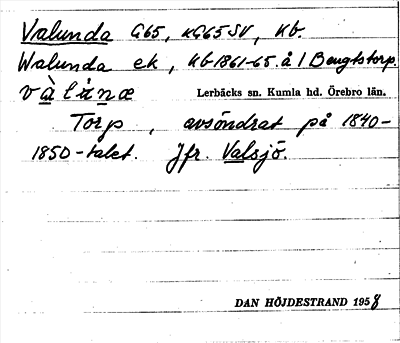 Valunda G65, KG65SV, Kb.
Walunda ek, Kb1861-65. å 1 Bengtstorp.
vàlånæ Lerbäcks sn. Kumla hd. Örebro län.
Torp, avsöndrat på 1840-
1850-talet. Jfr. Valsjö.
DAN HÖJDESTRAND 1958